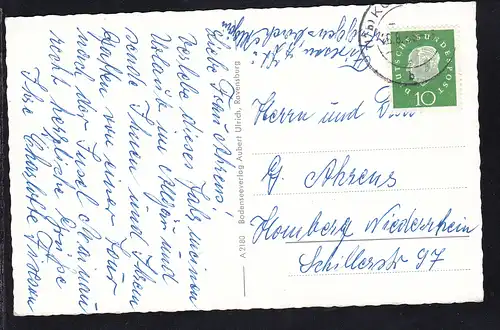 Liebe Frau Ahrens!
Verlebe dieses Jahr meinen
Urlaub im Allgäu und
sende Ihnen und Ihrem
Gatten von einer Tour
nach der Insel Mainau
recht herzliche Grüße
Ihre Charlotte
A 2180 Bodenseeverlag Aubert Ulrich, Ravensburg
DEUTSCHE BUNDESPOST
10
Herrn und Frau
G. Ahrens
Homberg Niederrhein
Schillerstr 97